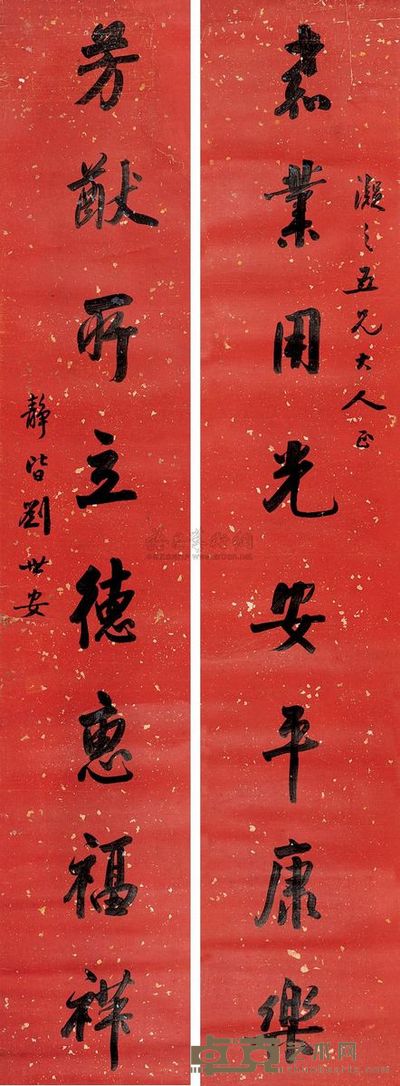 素業用光安平康樂
凝之五兄大人正
芳猷所立德惠福祥
靜皆劉世安